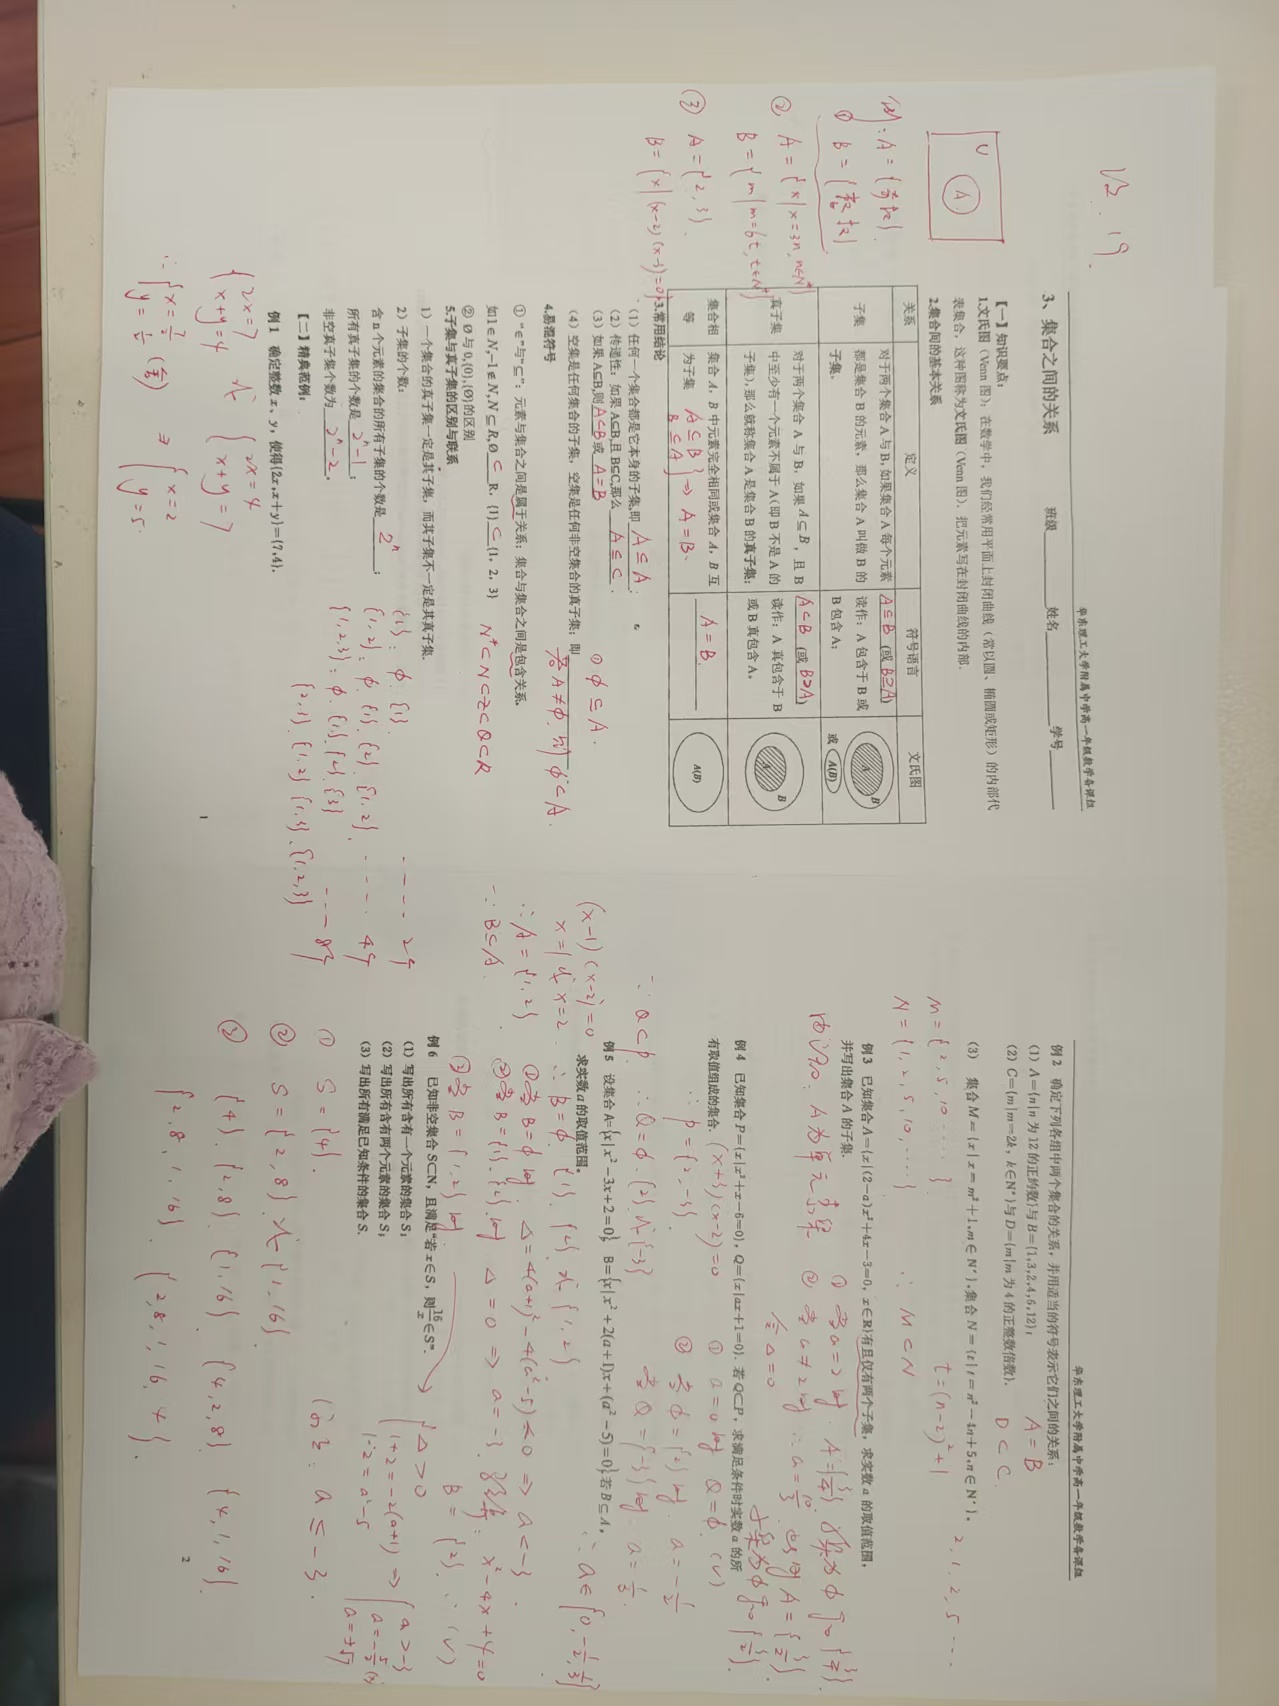 华东理工大学附属中学高一年级数学备课组
3、集合之间的关系 班级 姓名 学号
U
A
例: A = {奇数}
① B = {整数}
② A = {x | x=3n, n∈N*}
B = {m | m=6t, t∈N*}
③ A = {2, 3}
B = {x | (x-2)(x-3)=0}
【一】知识要点:
1.文氏图 (Venn 图): 在数学中, 我们经常用平面上封闭曲线 (常以圆、椭圆或矩形) 的内部代
表集合, 这种图称为文氏图 (Venn 图). 把元素写在封闭曲线的内部.
2.集合间的基本关系
关系 定义 符号语言 文氏图
子集
对于两个集合 A 与 B, 如果集合 A 每个元素
都是集合 B 的元素, 那么集合 A 叫做 B 的
子集。
A⊆B (或 B⊇A)
读作: A 包含于 B 或
B 包含 A;
A B
或 A(B)
真子集
对于两个集合 A 与 B, 如果 A⊆B, 且 B
中至少有一个元素不属于 A(即 B 不是 A 的
子集), 那么就称集合 A 是集合 B 的真子集;
A⊂B (或 B⊃A)
读作: A 真包含于 B
或 B 真包含 A。
A B
集合相等
集合 A, B 中元素完全相同或集合 A, B 互
为子集 A⊆B B⊆A } → A=B.
A = B.
A(B)
3.常用结论
(1) 任何一个集合都是它本身的子集, 即 A⊆A ;
(2) 传递性: 如果 A⊆B, 且 B⊆C, 那么 A⊆C .
(3) 如果 A⊆B, 则 A⊂B 或 A=B
① ϕ⊆A.
(4) 空集是任何集合的子集, 空集是任何非空集合的真子集; 即
若A≠ϕ, 则 ϕ⊂A.
4.易混符号
① “∈”与“⊆”: 元素与集合之间是属于关系; 集合与集合之间是包含关系.
如1∈N,-1∉N,N⊆R,Ø ⊂ R, {1} ⊂ {1, 2, 3} N*⊂N⊂Z⊂Q⊂R
② Ø 与 0,{0},{Ø}的区别
5.子集与真子集的区别与联系
1) 一个集合的真子集一定是其子集, 而其子集不一定是其真子集.
2) 子集的个数: {1}: ϕ, {1}. ---- 2个
含 n 个元素的集合的所有子集的个数是 2ⁿ ; {1,2}: ϕ, {1}, {2}, {1,2}. ---- 4个
所有真子集的个数是 2ⁿ-1 ; {1,2,3}: ϕ, {1}, {2}, {3} ---- 8个
非空真子集个数为 2ⁿ-2 。 {2,3}, {1,2} {1,3}, {1,2,3}
【二】精典范例:
例 1 确定整数 x、y, 使得{2x,x+y}={7,4}.
{ 2x=7 x+y=4 或 { 2x=4 x+y=7
∴ { x=7/2 y=1/2 (舍) ⇒ { x=2 y=5.
1
华东理工大学附属中学高一年级数学备课组
例 2 确定下列各组中两个集合的关系, 并用适当的符号表示它们之间的关系:
(1) A={n|n 为 12 的正约数}与 B={1,3,2,4,6,12}; A = B
(2) C={m|m=2k, k∈N*}与 D={m|m 为 4 的正整数倍数}. D⊂C.
(3) 集合 M={x|x=m²+1,m∈N*}, 集合 N={t|t=n²-4n+5,n∈N*}. 2, 1, 2, 5 ...
M = {2, 5, 10 ....} t=(n-2)²+1
N = {1, 2, 5, 10, ....} ∴ M⊂N
例 3 已知集合 A={x|(2-a)x²+4x-3=0, x∈R}有且仅有两个子集, 求实数 a 的取值范围,
并写出集合 A 的子集.
由已知: A为单元素集
① 当a=2时 A={3/4} 子集为 ϕ 和 {3/4}.
② 当a≠2时 ∴ a=10/3. 此时 A={3/2}.
令 Δ=0 子集为 ϕ 和 {3/2}.
例 4 已知集合 P={x|x²+x-6=0}, Q={x|ax+1=0}. 若 Q⊂P, 求满足条件时实数 a 的所
有取值组成的集合. (x+3)(x-2)=0 ① a=0时 Q=ϕ. (√)
∴ P={2,-3}. ② 当ϕ={2}时. a=-1/2
∵ Q⊂P ∴ Q=ϕ, {2}或{-3} 当Q={-3}时, a=1/3.
∴ a∈{0, -1/2, 1/3}
例 5 设集合 A={x|x²-3x+2=0}, B={x|x²+2(a+1)x+(a²-5)=0}, 若 B⊆A,
求实数 a 的取值范围。
(x-1)(x-2)=0
x=1或x=2 ∴ B=ϕ, {1}, {2} 或 {1,2}
∴ A={1,2} ①当B=ϕ时, Δ=4(a+1)²-4(a²-5)<0 ⇒ a<-3.
∵ B⊆A. ②当B={1},{2}时 Δ=0 ⇒ a=-3. x²-4x+4=0
B={2}. ∴ (√)
③当B={1,2}时.
{ Δ>0 1+2=-2(a+1) 1·2=a²-5 ⇒ { a>-3 a=-5/2 (×) a=±√7
a≤-3.
例 6 已知非空集合 S⊂N, 且满足“若 x∈S, 则16/x∈S”.
(1) 写出所有含有一个元素的集合 S;
(2) 写出所有含有两个元素的集合 S;
(3) 写出所有满足已知条件的集合 S.
① S={4}.
② S={2,8} 或 {1,16}.
③ {4}, {2,8}, {1,16}, {4,2,8}, {4,1,16}
{2,8,1,16}, {2,8,1,16,4}.
2